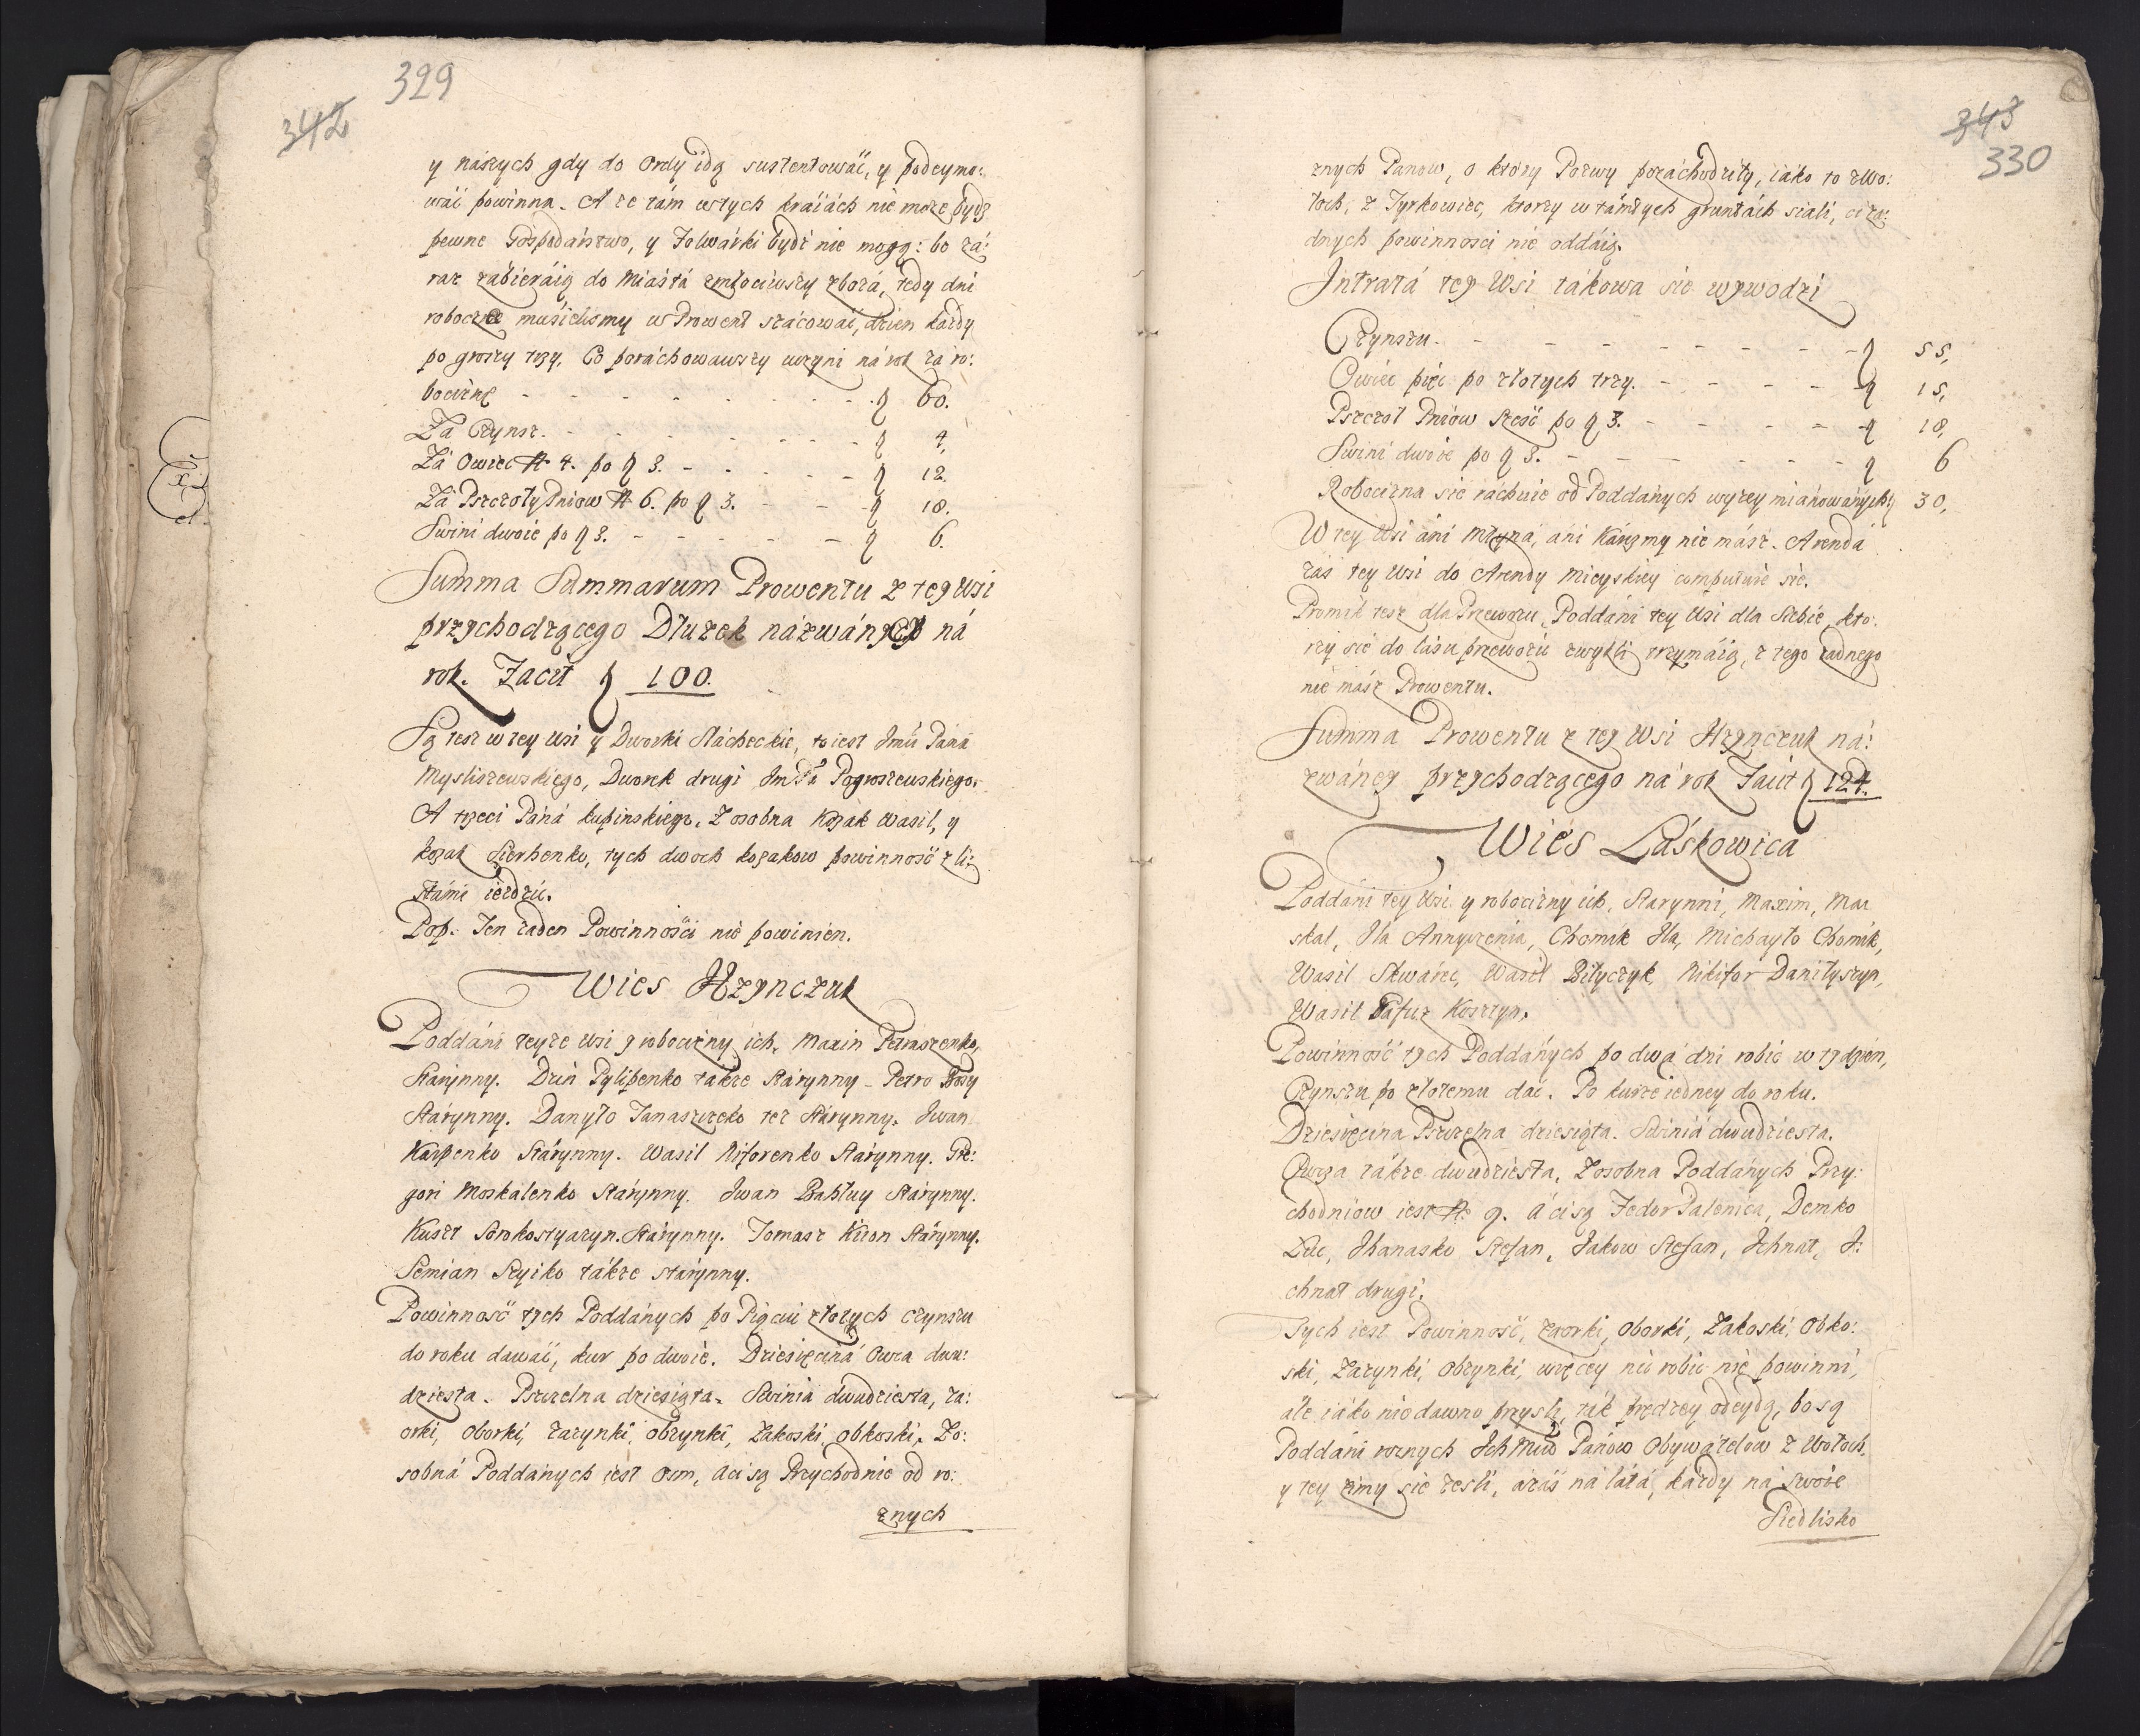 329
342
y nászych gdy do Ordy idą sustentowáć, y podeymo:
wáć powinna. A że tám wtych kraiách nie może bydź
pewne Gospodárstwo, y Folwárki bydź nie mogą: bo zá:
raz zábieráią do Miástá zmłociwszy zbożá, tedy dni
roboczne muśielismy w Prowent szácowáć, dzien káżdy
po groszy trzy. Co poráchowawszy uczyni ná rok zá ro:
bociznę - - - - - - - - - ƒ 60.
Zá Czynsz. - - - - - - - - ƒ 4,
Zá Owiec № 4. po ƒ 3. - - - - - ƒ 12.
Zá Pszczoły Pniow № 6. po ƒ 3. - - - ƒ 18.
Swini dwoie po ƒ 3. - - - - - - ƒ 6.
Summa Summarum Prowentu z tey Wsi
przychodzącego Dłużek názwáney ná
rok. Facit ƒ 100.
Są tesz w tey Wsi y Dworki Szlácheckie, to iest Jmći Páná
Mysliszewskiego, Dworek drugi Jm Pá Pogroszewskiego.
A trzeci Páná Łupinskiego. Zosobna Kozak Wasil, y
kozak Sierhenko, tych dwoch kozakow powinność z li:
stámi ieździć.
Pop. Ten żaden Powinnośći nie powinien.
Wies Hrynczuk
Poddáni teyże Wsi y robocizny ich. Maxin Petraszenko,
Starynny. Dziń Pylipenko także Stárynny - Petro Bosy
Stárynny. Danyło Janaszczeko też Stárynny. Jwan
Karpenko Stárynny. Wasil Niforenko Stárynny. Gre:
gori Moskalenko Stárynny. Jwan Babłuy Stárynny.
Kuszt Senkostyaryn. Stárynny. Tomasz Kiion Stárynny.
Semian Szyiko tákże stárynny.
Powinność tych Poddánych po Piąciu złotych czynszu
do roku dawáć, kur po dwoie. Dziesięcina Owca dwu:
dziesta. Pszczelna dziesiąta. Swinia dwudziesta, za:
orki, Oborki, zarzynki, obzynki, Zakoski, obkoski. Zo:
sobná Poddánych iest osm, á ci są Przychodnie od ro:
znych
343
330
znych Panow, o ktory Pozwy pozáchodziły, iáko to z Wo:
łoch, z Tyrkowiec, ktorzy w támtych gruntách siali, ci ża:
dnych powinnosci nie oddáią.
Jntratá tey Wsi tákowa sie wywodzi
Czynszu. - - - - - - - - - - ƒ 55,
Owiec pięć po złotych trzy. - - - - - ƒ 15,
Pszczoł Pniow sześć po ƒ 3. - - - - - ƒ 18,
Swini dwoie po ƒ 3. - - - - - - - ƒ 6
Robocizna sie ráchuie od Poddánych wyzey miánowánych ƒ 30,
W tey Wsi áni Młyná, áni Kárczmy nie mász. Arendá
zás tey Wsi do Arendy Mieyskiey computuie sie.
Promik tesz dla Przewozu, Poddáni tey Wsi dla Siebie, kto:
rzy sie do lásu przewozić zwykli trzymáią, z tego żadnego
nie mász Prowentu.
Summa Prowentu z tey Wsi Hrynczuk ná:
zwáney przychodzącego ná rok Facit ƒ 124.
Wiés Láskowica
Poddáni tey Wsi y robocizny ich. Starynni, Maxim, Mo
skal, Jła Annyszenia, Chomik Jla, Michayło Chomik,
Wasil Skwárec, Wasil Biłyczyk, Nikifor Daniłyszyn,
Wasil Pafuz Kosztyn.
Powinność tych Poddánych po dwá dni robić w tydzień,
Czynszu po złotemu dáć. Po kurze iedney do roku.
Dziesięcina Pszczelna dziesiąta. Swinia dwudziesta.
Owcza tákże dwudziesta. Zosobna Poddánych Przy:
chodniow iest № 9. á ci są Fedor Palenica, Demko
Zuc, Jhanasko Stefan, Jakow Stefan, Jchnat, J:
chnat drugi.
Tych iest Powinność, zaorki, Oborki, Zakoski, Obko:
ski, Zarzynki, Obzynki, więcey nic robić nie powinni,
ále iáko niedawno przyszli, ták prędzey odeydą, bo są
Poddáni roznych Jch Mciow Panow Obywátelow z Wołoch,
y tey zimy sie zesli, ázás ná látá, káżdy ná swoie
Siedlisko